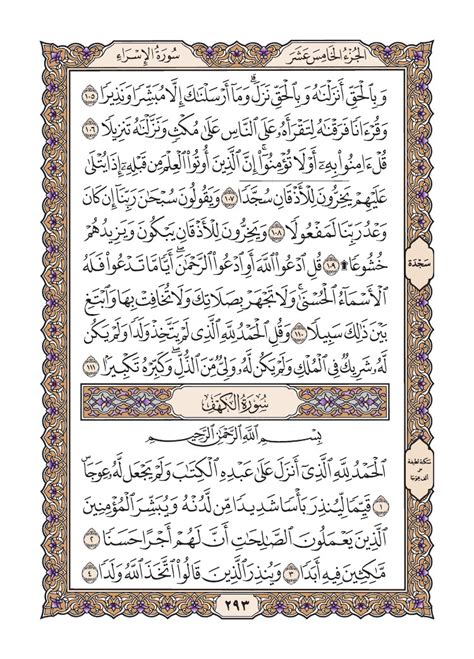 سُورَةُ الإِسْرَاءِ
الجُزْءُ الخَامِسَ عَشَرَ
وَبِالْحَقِّ أَنزَلْنَٰهُ وَبِالْحَقِّ نَزَلَ ۗ وَمَا أَرْسَلْنَٰكَ إِلَّا مُبَشِّرًا وَنَذِيرًا ١٠٥
وَقُرْءَانًا فَرَقْنَٰهُ لِتَقْرَأَهُۥ عَلَى النَّاسِ عَلَىٰ مُكْثٍ وَنَزَّلْنَٰهُ تَنزِيلًا ١٠٦
قُلْ ءَامِنُوا بِهِۦٓ أَوْ لَا تُؤْمِنُوٓا ۚ إِنَّ الَّذِينَ أُوتُوا الْعِلْمَ مِن قَبْلِهِۦٓ إِذَا يُتْلَىٰ
عَلَيْهِمْ يَخِرُّونَ لِلْأَذْقَانِ سُجَّدًا ١٠٧ وَيَقُولُونَ سُبْحَٰنَ رَبِّنَآ إِن كَانَ
وَعْدُ رَبِّنَا لَمَفْعُولًا ١٠٨ وَيَخِرُّونَ لِلْأَذْقَانِ يَبْكُونَ وَيَزِيدُهُمْ
خُشُوعًا ۩ ١٠٩ قُلِ ادْعُوا اللَّهَ أَوِ ادْعُوا الرَّحْمَٰنَ ۖ أَيًّا مَّا تَدْعُوا فَلَهُ
الْأَسْمَآءُ الْحُسْنَىٰ ۚ وَلَا تَجْهَرْ بِصَلَاتِكَ وَلَا تُخَافِتْ بِهَا وَابْتَغِ
بَيْنَ ذَٰلِكَ سَبِيلًا ١١٠ وَقُلِ الْحَمْدُ لِلَّهِ الَّذِي لَمْ يَتَّخِذْ وَلَدًا وَلَمْ يَكُن
لَّهُۥ شَرِيكٌ فِي الْمُلْكِ وَلَمْ يَكُن لَّهُۥ وَلِيٌّ مِّنَ الذُّلِّ ۖ وَكَبِّرْهُ تَكْبِيرًا ١١١
سُورَةُ الكَهْفِ
بِسْمِ اللَّهِ الرَّحْمَٰنِ الرَّحِيمِ
الْحَمْدُ لِلَّهِ الَّذِيٓ أَنزَلَ عَلَىٰ عَبْدِهِ الْكِتَٰبَ وَلَمْ يَجْعَل لَّهُۥ عِوَجَا ۜ
١ قَيِّمًا لِّيُنذِرَ بَأْسًا شَدِيدًا مِّن لَّدُنْهُ وَيُبَشِّرَ الْمُؤْمِنِينَ
الَّذِينَ يَعْمَلُونَ الصَّٰلِحَٰتِ أَنَّ لَهُمْ أَجْرًا حَسَنًا ٢
مَّٰكِثِينَ فِيهِ أَبَدًا ٣ وَيُنذِرَ الَّذِينَ قَالُوا اتَّخَذَ اللَّهُ وَلَدًا ٤
سَجْدَة
سكتة لطيفة
على
ألف عِوَجَا
٢٩٣